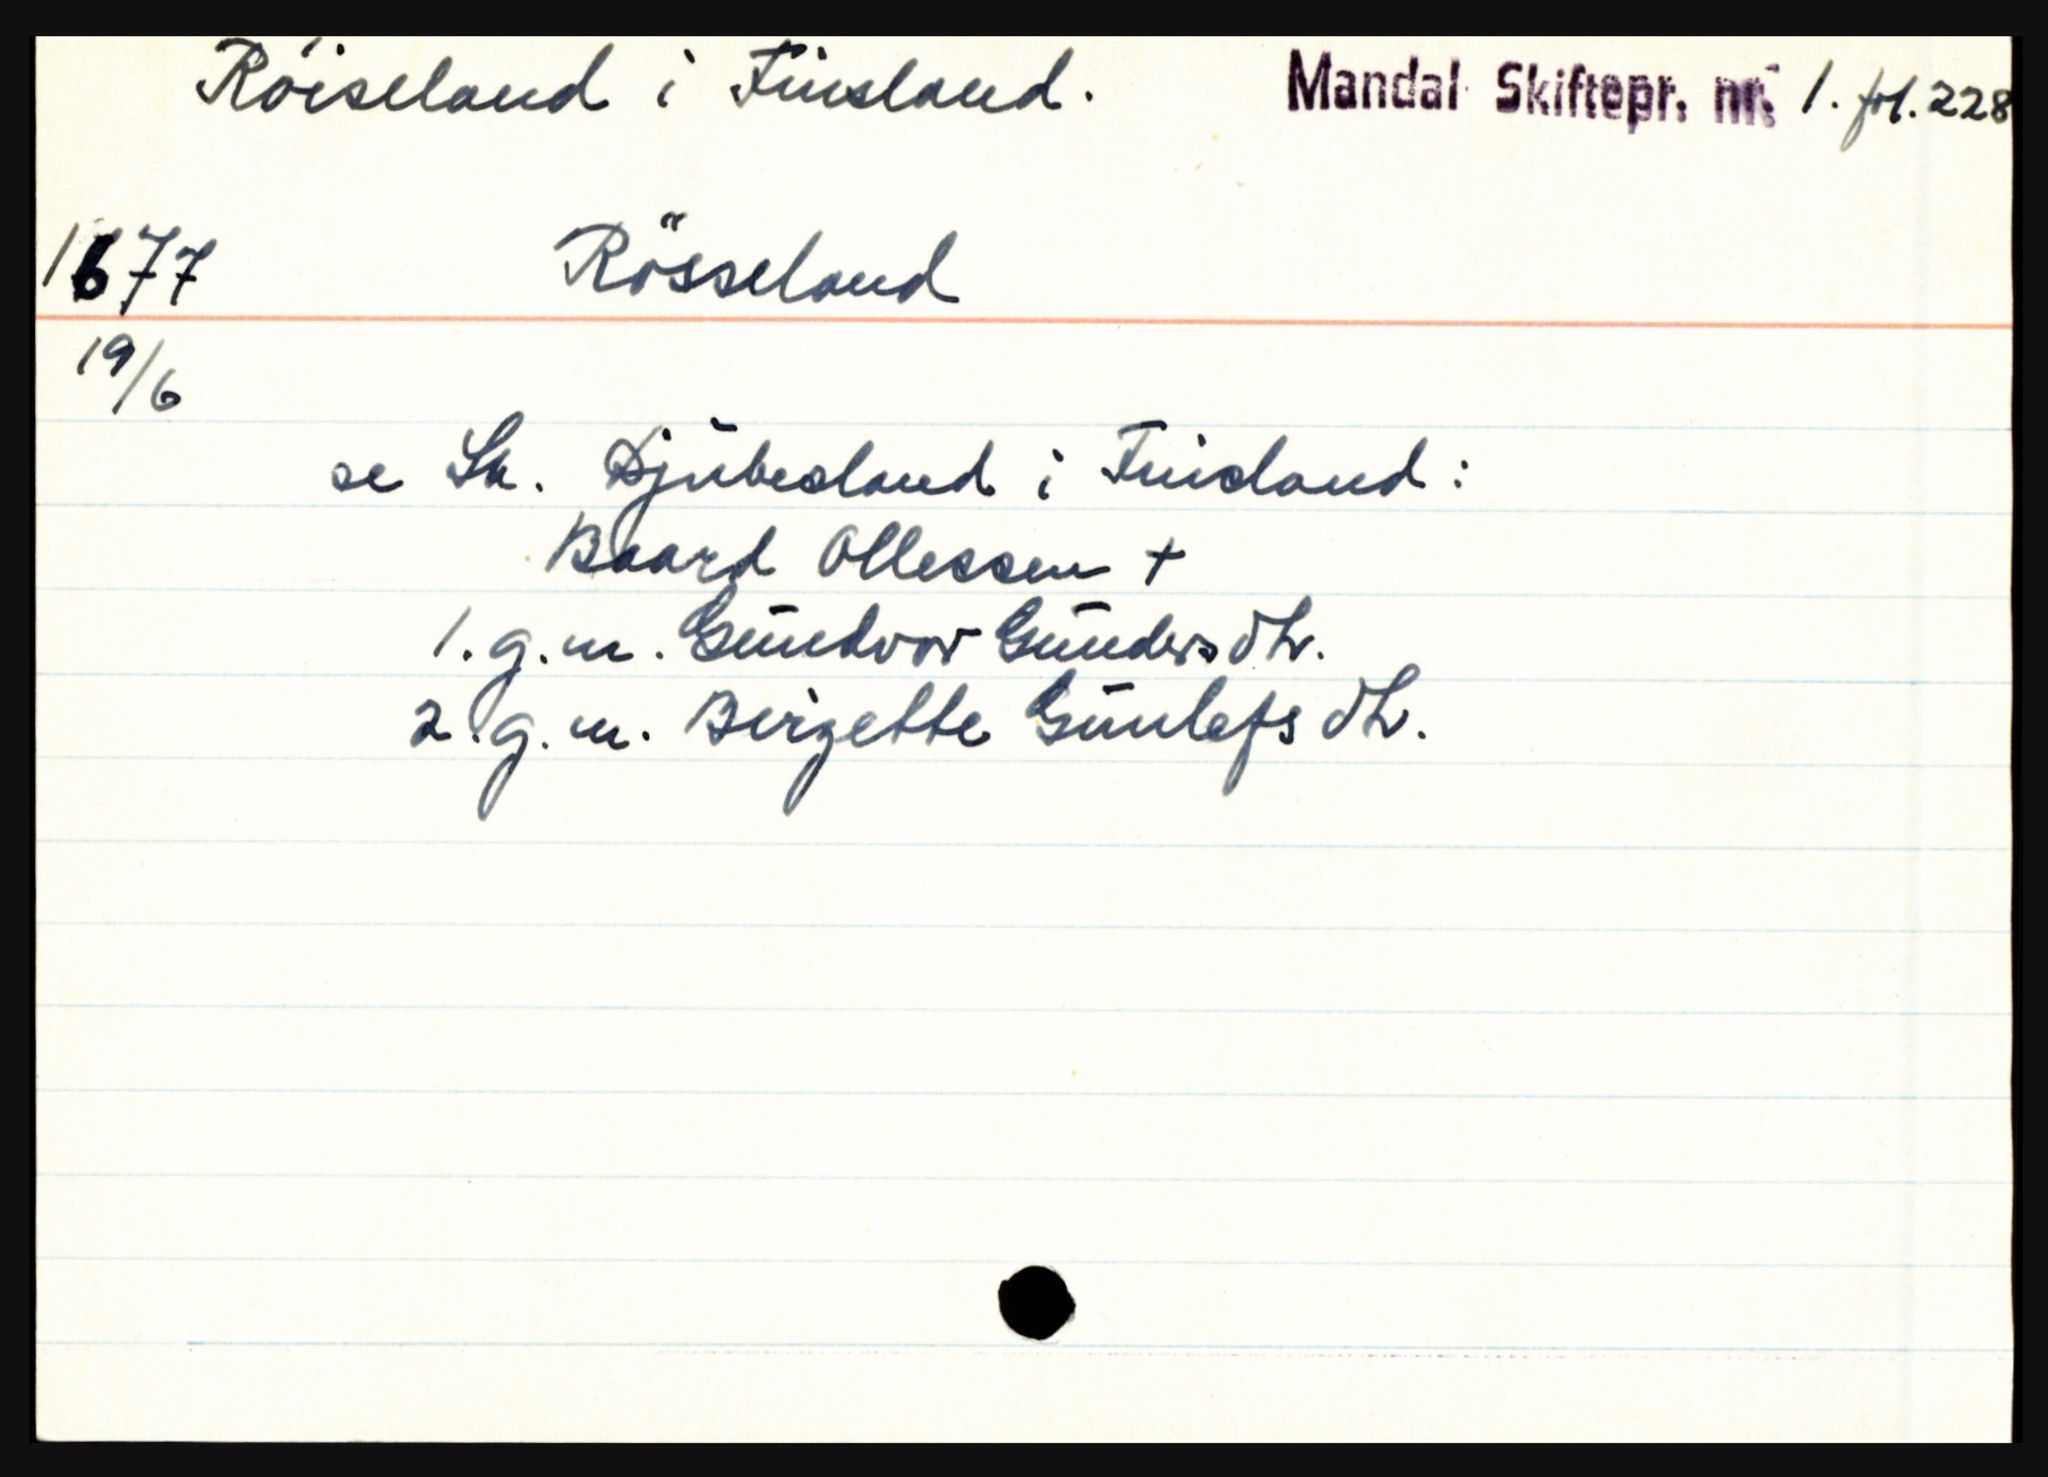 Röiseland i Finsland. Mandal Skiftepr. nr. 1. fol. 228
1677 Rösseland
19/6
se Sk. Djubesland i Finsland:
Baard Ollessen +
1. g.m. Gundvor Gunders dtr.
2. g.m. Birgette Gunlefs dtr.